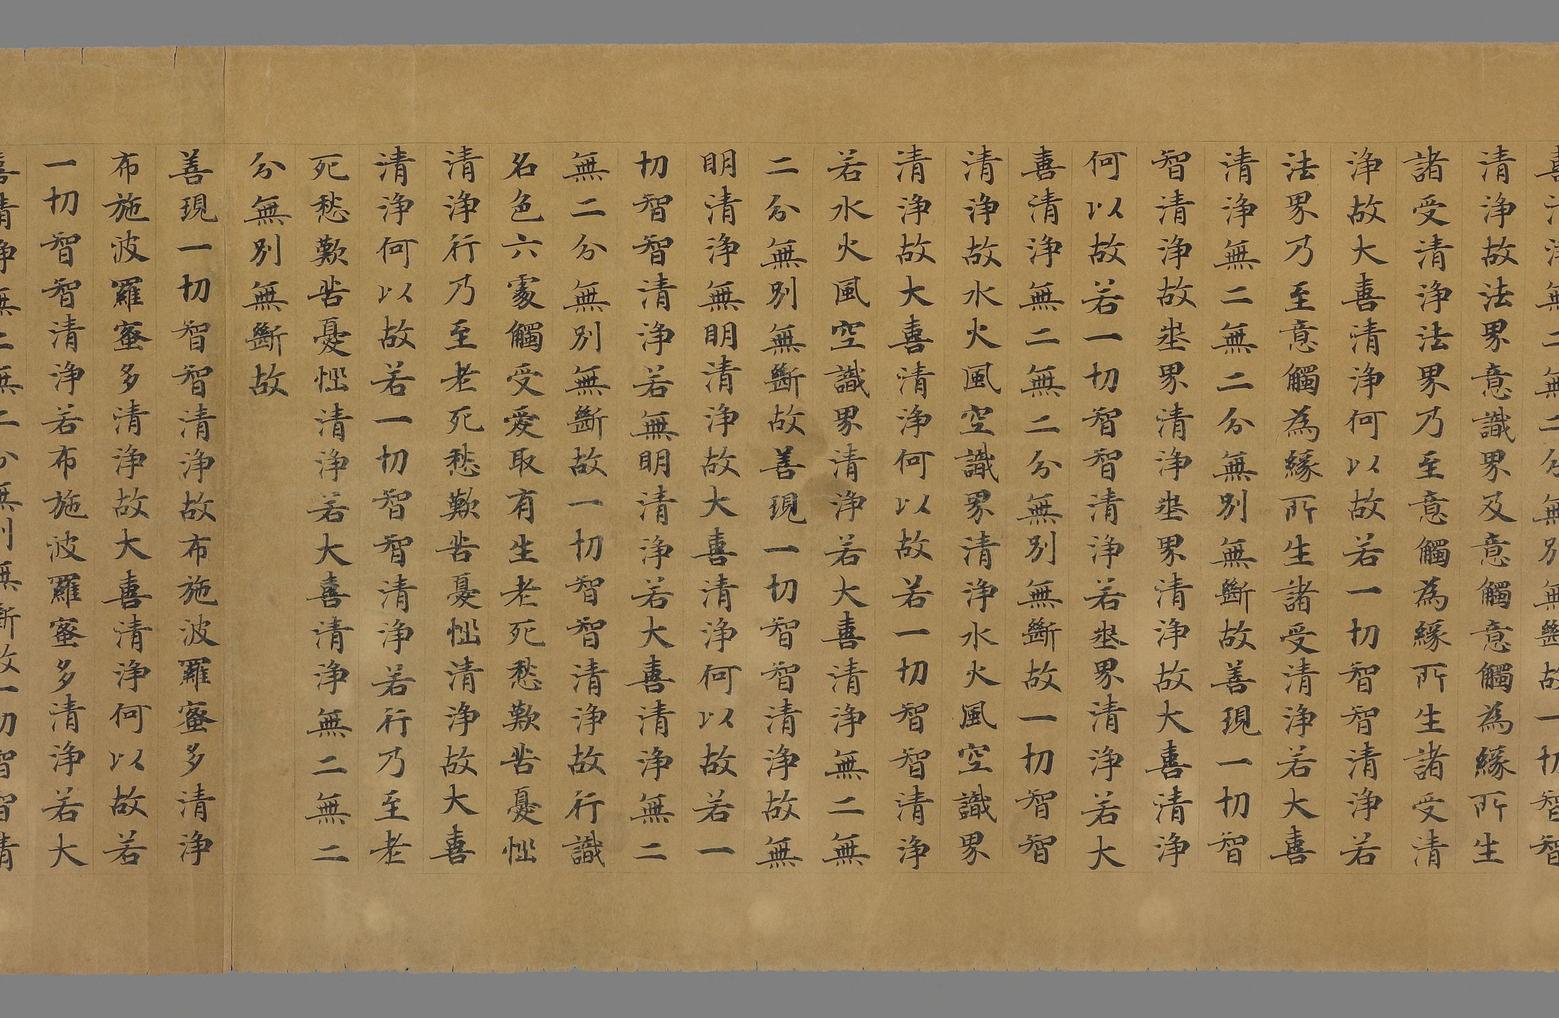 喜清淨無二無二分無別無斷故一切智智
清淨故法界意識界及意觸意觸為緣所生
諸受清淨法界乃至意觸為緣所生諸受清
淨故大喜清淨何以故若一切智智清淨若
法界乃至意觸為緣所生諸受清淨若大喜
清淨無二無二分無別無斷故善現一切智
智清淨故埊界清淨埊界清淨故大喜清淨
何以故若一切智智清淨若埊界清淨若大
喜清淨無二無二分無別無斷故一切智智
清淨故水火風空識界清淨水火風空識界
清淨故大喜清淨何以故若一切智智清淨
若水火風空識界清淨若大喜清淨無二無
二分無別無斷故善現一切智智清淨故無
明清淨無明清淨故大喜清淨何以故若一
切智智清淨若無明清淨若大喜清淨無二
無二分無別無斷故一切智智清淨故行識
名色六處觸受愛取有生老死愁歎苦憂惱
清淨行乃至老死愁歎苦憂惱清淨故大喜
清淨何以故若一切智智清淨若行乃至老
死愁歎苦憂惱清淨若大喜清淨無二無二
分無別無斷故
善現一切智智清淨故布施波羅蜜多清淨
布施波羅蜜多清淨故大喜清淨何以故若
一切智智清淨若布施波羅蜜多清淨若大
喜清淨無二無二分無別無斷故一切智智清